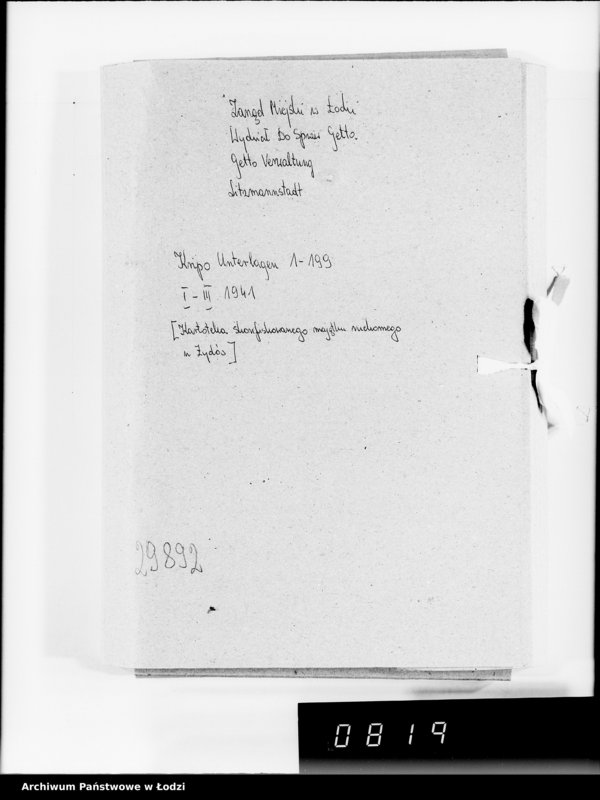 Zarząd Miejski w Łodzi
Wydział Do Spraw Getto.
Getto Verwaltung
Litzmannstadt
Kripo Unterlagen 1-199
I-III 1941
[Kartoteka skonfiskowanego majątku ruchomego
u Żydów]
29892
0819
Archiwum Państwowe w Łodzi